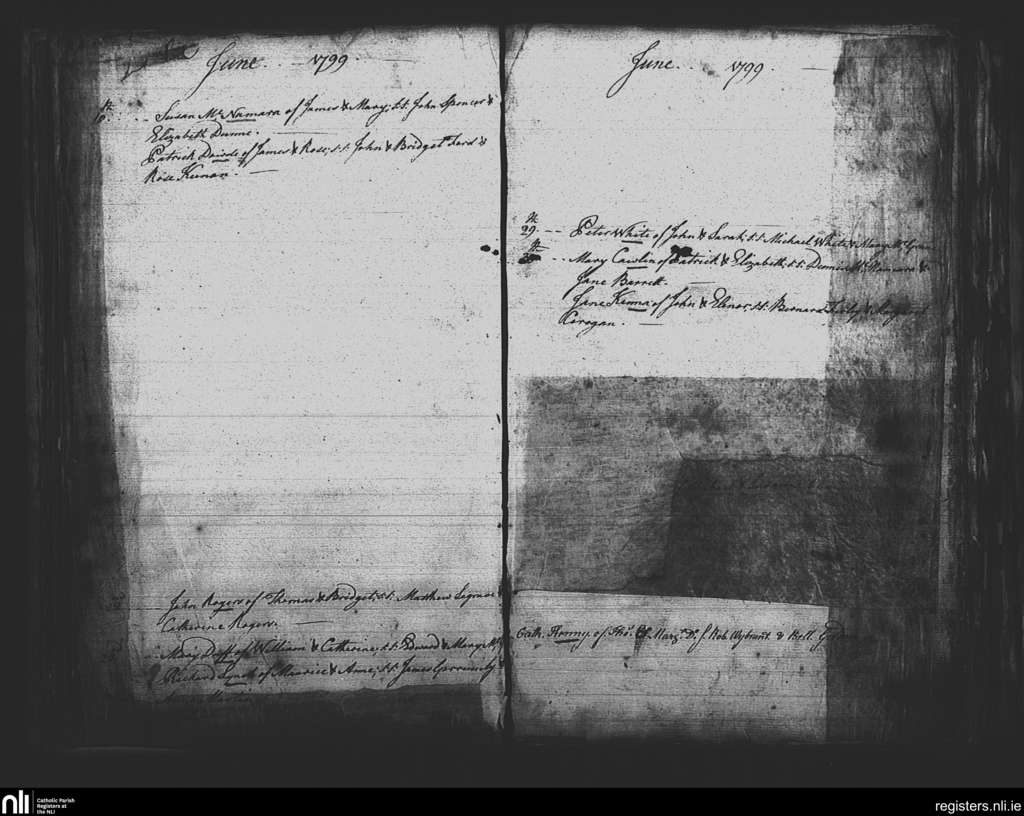 June. 1799.
th
10 Susan McNamara of James & Mary, s.s. John Spencer &
Elizabeth Dunne.
Patrick of James & Rose, s.s. John & Bridget Ford &
Rose Keenan.
John Rogers of Thomas & Bridget, s.s. Matthew Segrave
Catherine Rogers.
Mary Duff of William & Catherine, s.s. Edward & Mary
Richard Lynch of Maurice & Anne, s.s. James
June. 1799.
th
29 Peter White of John & Sarah, s.s. Michael White & Mary
th
Mary Cawlin of Patrick & Elizabeth, s.s. Dennis McNamara &
Jane Barrett.
Jane Kenna of John & Elenor, s.s. Bernard &
Cath. of Thos. & Marg. Do. Rob. & Bett
nli
Catholic Parish
Registers at
the NLI
registers.nli.ie